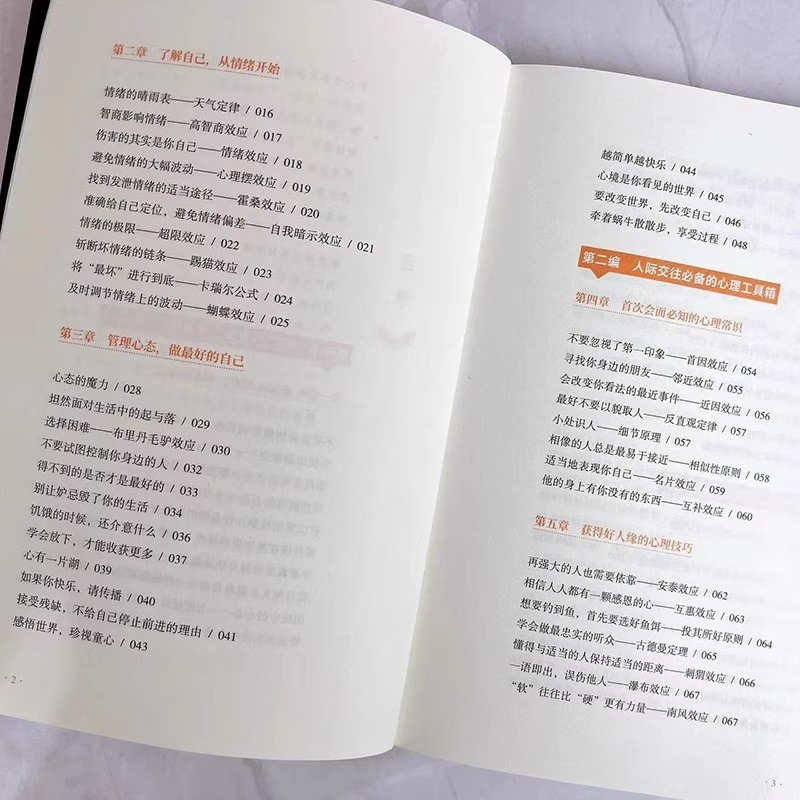 第二章 了解自己，从情绪开始
情绪的晴雨表——天气定律 / 016
智商影响情绪——高智商效应 / 017
伤害的其实是你自己——情绪效应 / 018
避免情绪的大幅波动——心理摆效应 / 019
找到发泄情绪的适当途径——霍桑效应 / 020
准确给自己定位，避免情绪偏差——自我暗示效应 / 021
情绪的极限——超限效应 / 022
斩断坏情绪的链条——踢猫效应 / 023
将“最坏”进行到底——卡瑞尔公式 / 024
及时调节情绪上的波动——蝴蝶效应 / 025
第三章 管理心态，做最好的自己
心态的魔力 / 028
坦然面对生活中的起与落 / 029
选择困难——布里丹毛驴效应 / 030
不要试图控制你身边的人 / 032
得不到的是否才是最好的 / 033
别让妒忌毁了你的生活 / 034
饥饿的时候，还介意什么 / 036
学会放下，才能收获更多 / 037
心有一片湖 / 039
如果你快乐，请传播 / 040
接受残缺，不给自己停止前进的理由 / 041
感悟世界，珍视童心 / 043
· 2 ·
越简单越快乐 / 044
心境是你看见的世界 / 045
要改变世界，先改变自己 / 046
牵着蜗牛散散步，享受过程 / 048
第二编 人际交往必备的心理工具箱
第四章 首次会面必知的心理常识
不要忽视了第一印象——首因效应 / 054
寻找你身边的朋友——邻近效应 / 055
会改变你看法的最近事件——近因效应 / 056
最好不要以貌取人——反直观定律 / 057
小处识人——细节原理 / 057
相像的人总是最易于接近——相似性原则 / 058
适当地表现你自己——名片效应 / 059
他的身上有你没有的东西——互补效应 / 060
第五章 获得好人缘的心理技巧
再强大的人也需要依靠——安泰效应 / 062
相信人人都有一颗感恩的心——互惠效应 / 063
想要钓到鱼，首先要选好鱼饵——投其所好原则 / 064
学会做最忠实的听众——古德曼定理 / 065
懂得与适当的人保持适当的距离——刺猬效应 / 066
一语即出，误伤他人——瀑布效应 / 067
“软”往往比“硬”更有力量——南风效应 / 067
· 3 ·